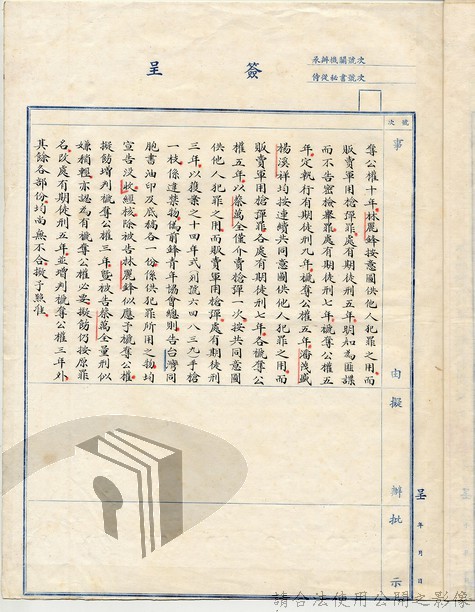 承辦機關號次
侍從秘書號次
簽呈
號次
事由擬辦批示
奪公權十年林麗鋒按意圖供他人犯罪之用而
販賣軍用槍彈罪處有期徒刑五年明知為匪諜
而不告密檢舉罪處有期徒刑七年褫奪公權五
年定執行有期徒刑九年褫奪公權五年潘茂盛
楊溪祥均按連續共同意圖供他人犯罪之用而
販賣軍用槍彈罪各處有期徒刑七年各褫奪公
權五年以蔡萬全僅介賣槍彈一次按共同意圖
供他人犯罪之用而販賣軍用槍彈罪處有期徒刑
三年以獲案之十四年式列號六四八三九手槍
一枝係違禁物偽前鋒青年協會總則告台灣同
胞書油印及底稿各一份係供犯罪所用之物均
宣告沒收經核除被告林麗鋒似應予褫奪公權
擬飭增判褫奪公權三年暨被告蔡萬全量刑似
嫌稍輕亦認為有褫奪公權必要擬飭仍按原罪
名改處有期徒刑五年並增判褫奪公權三年外
其餘各部份均尚無不合擬予照准
呈 年 月 日
請合法使用公開之影像